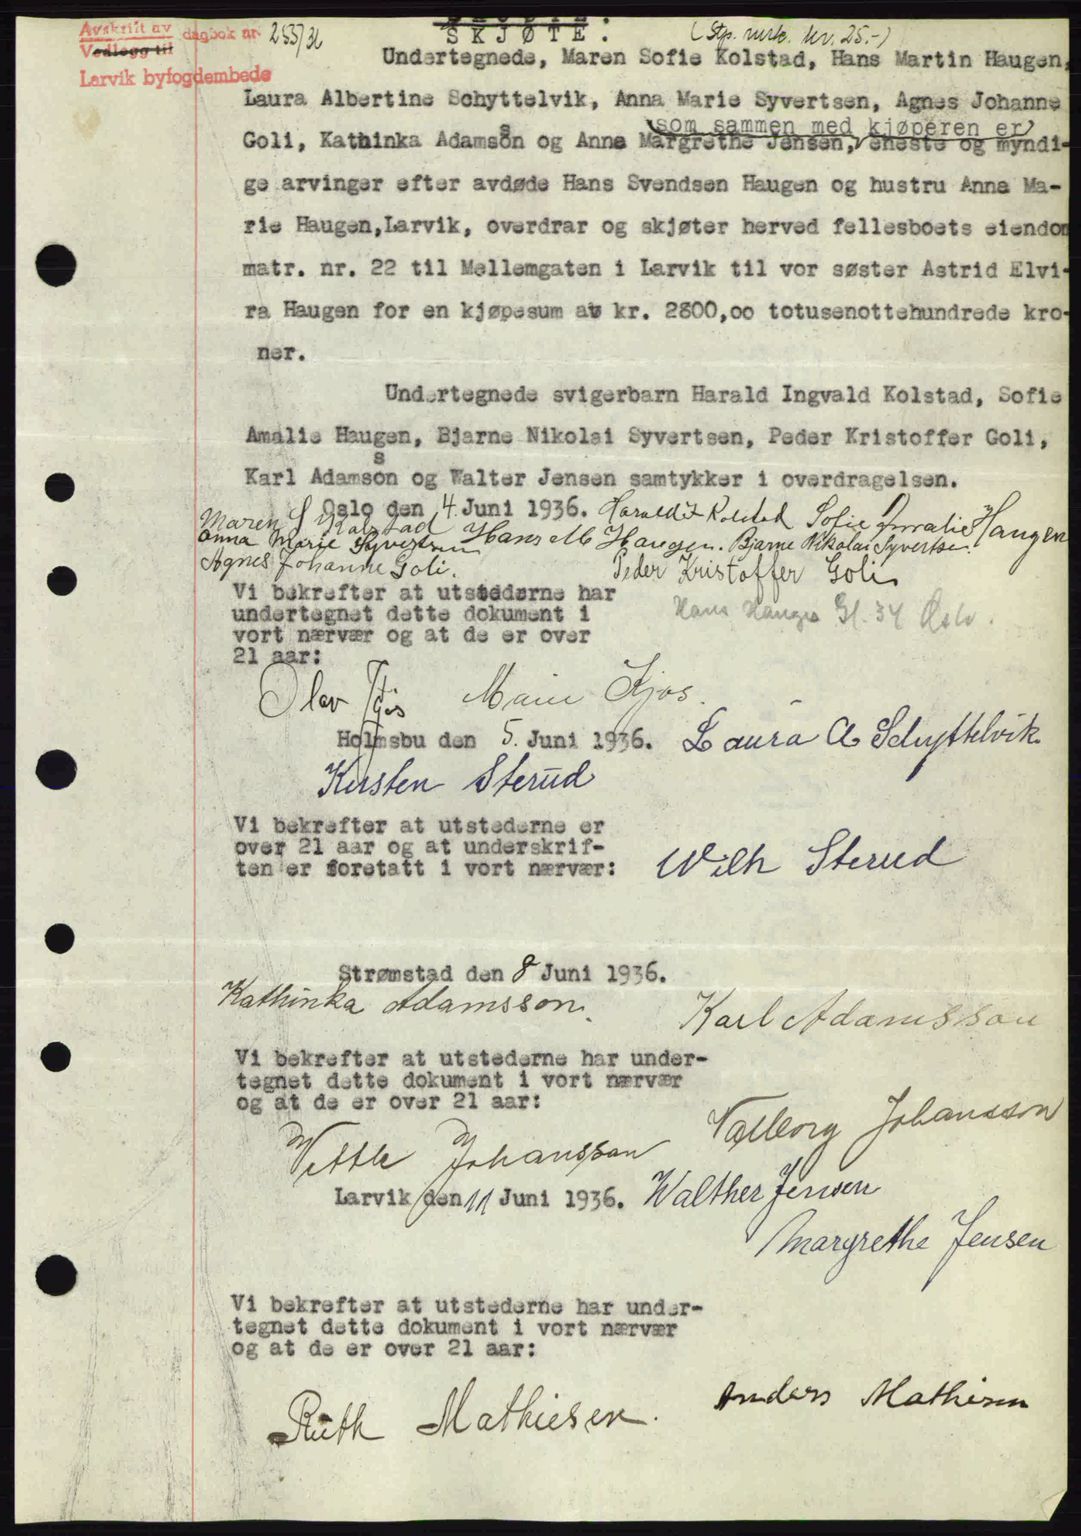 Avskrift av dagbok nr. 255/36
Vedlegg til
Larvik byfogdembede
SKJØTE:
(Stp. merk. kr. 25.-)
Undertegnede, Maren Sofie Kolstad, Hans Martin Haugen,
Laura Albertine Schyttelvik, Anna Marie Syvertsen, Agnes Johanne
som sammen med kjøperen er
Goli, Kathinka Adamsson og Anna Margrethe Jensen, eneste og myndi-
ge arvinger efter avdøde Hans Svendsen Haugen og hustru Anna Ma-
rie Haugen, Larvik, overdrar og skjøter herved fellesboets eiendom
matr. nr. 22 til Mellemgaten i Larvik til vor søster Astrid Elvi-
ra Haugen for en kjøpesum av kr. 2800,00 totusenottehundrede kro-
ner.
Undertegnede svigerbarn Harald Ingvald Kolstad, Sofie
Amalie Haugen, Bjarne Nikolai Syvertsen, Peder Kristoffer Goli,
Karl Adamsson og Walter Jensen samtykker i overdragelsen.
Oslo den 4. Juni 1936.
Maren S Kolstad Harald I Kolstad Sofie Amalie Haugen
Anna Marie Syvertsen Hans M Haugen. Bjarne Nikolai Syvertsen
Agnes Johanne Goli. Peder Kristoffer Goli
Vi bekrefter at utstederne har
undertegnet dette dokument i
Hans Hauges Gt. 34 Oslo.
vort nærvær og at de er over
21 aar:
Olav Kjos Marie Kjos.
Holmsbu den 5. Juni 1936. Laura A Schyttelvik
Kirsten Sterud
Vi bekrefter at utstederne er
over 21 aar og at underskrif-
ten er foretatt i vort nærvær: Wilh Sterud
Strømstad den 8 Juni 1936.
Kathinka Adamsson. Karl Adamsson
Vi bekrefter at utstederne har under-
tegnet dette dokument i vort nærvær
og at de er over 21 aar:
Johansson Valborg Johansson
Larvik den 11 Juni 1936. Walther Jensen
Margrethe Jensen
Vi bekrefter at utstederne har under-
tegnet dette dokument i vort nærvær
og at de er over 21 aar:
Ruth Mathiesen. Anders Mathisen